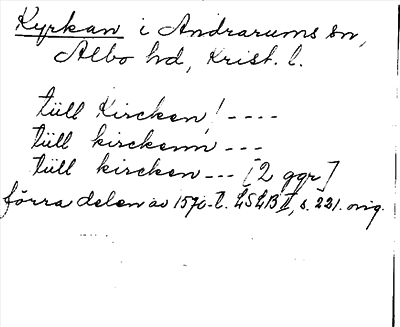 Kyrkan i Andrarums sn,
Albo hd, Krist. l.
tüll Kircken! ----
tüll kirckenn ---
tüll kircken --- [2 ggr]
förra delen av 1570-t. LSLB II, s. 221. orig.